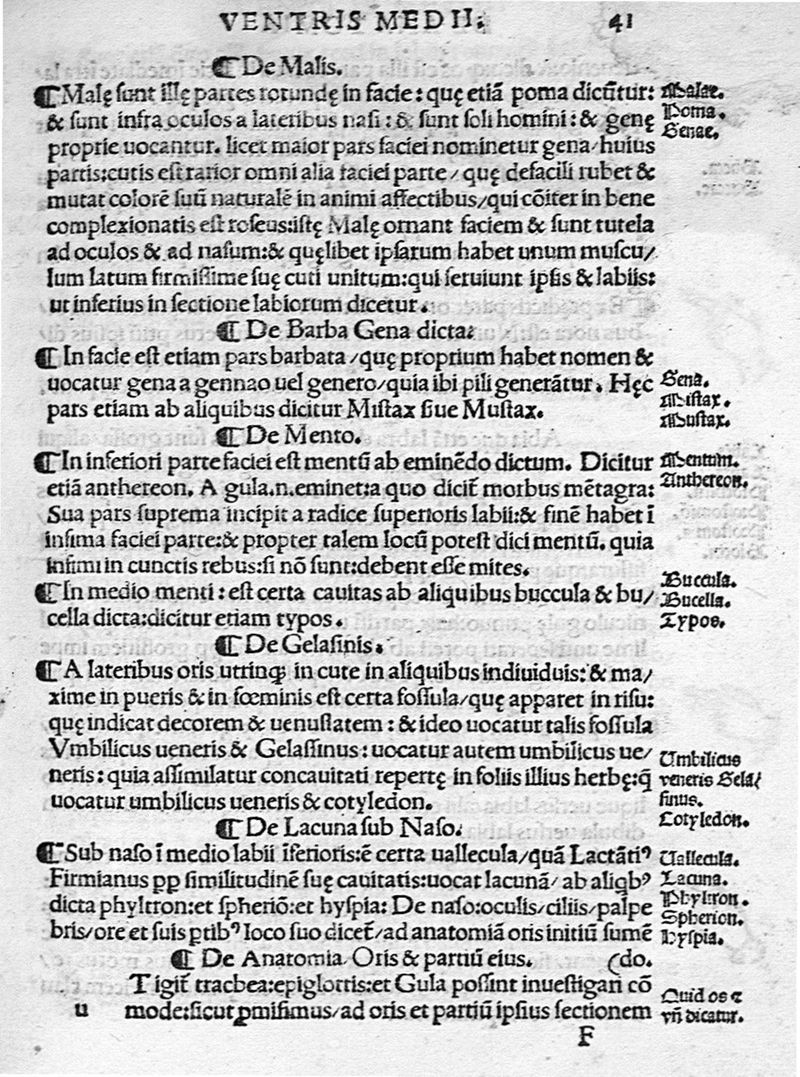 VENTRIS MEDII. 41
¶ De Malis.
¶ Malę ſunt illę partes rotundę in facie: quę etiā poma dicūtur:
& ſunt infra oculos a lateribus naſi: & ſunt ſoli homini: & genę
proprie uocantur. licet maior pars faciei nominetur gena/huius
partis:cutis eſt rarior omni alia faciei parte/ quę defacili rubet &
mutat colorē ſuū naturalē in animi affectibus/qui cōiter in bene
complexionatis eſt roſeus:iſtę Malę ornant faciem & ſunt tutela
ad oculos & ad naſum:& quęlibet ipſarum habet unum muſcu/
lum latum firmiſſime ſuę cuti unitum:qui ſeruiunt ipſis & labiis:
ut inferius in ſectione labiorum dicetur.
Malae.
Poma.
Genae.
¶ De Barba Gena dicta:
¶ In facie eſt etiam pars barbata/quę proprium habet nomen &
uocatur gena a gennao uel genero/quia ibi pili generātur. Hęc
pars etiam ab aliquibus dicitur Miſtax ſiue Muſtax.
Gena.
Miſtax.
Muſtax.
¶ De Mento.
¶ In inferiori parte faciei eſt mentū ab eminēdo dictum. Dicitur
etiā anthereon. A gula.n.eminet:a quo dicit̄ morbus mētagra:
Sua pars ſuprema incipit a radice ſuperioris labii:& finē habet ī
infima faciei parte:& propter talem locū poteſt dici mentū. quia
infimi in cunctis rebus:ſi nō ſunt:debent eſſe mites.
Mentum.
Anthereon.
¶ In medio menti: eſt certa cauitas ab aliquibus buccula & bu/
cella dicta:dicitur etiam typos.
Buccula.
Bucella.
Typos.
¶ De Gelaſinis.
¶ A lateribus oris utrinqꝫ in cute in aliquibus indiuiduis: & ma/
xime in pueris & in fœminis eſt certa foſſula/quę apparet in riſu:
quę indicat decorem & uenuſtatem: & ideo uocatur talis foſſula
Vmbilicus ueneris & Gelaſſinus: uocatur autem umbilicus ue/
neris: quia aſſimilatur concauitati repertę in foliis illius herbę:q̄
uocatur umbilicus ueneris & cotyledon.
Umbilicus
veneris Gela/
ſinus.
Cotyledon.
¶ De Lacuna ſub Naſo.
¶ Sub naſo ī medio labii īferioris:ē certa uallecula/quā Lactātiꝰ
Firmianus ꝓp ſimilitudinē ſuę cauitatis:uocat lacunā/ ab aliqbꝰ
dicta phyltron:et ſpheriō:et hyſpia: De naſo:oculis/ciliis/palpe
bris/ore et ſuis ꝑtibꝰ loco ſuo dicet̄/ad anatomiā oris initiū ſumē
(do.
Uallecula.
Lacuna.
Phyltron.
Spherion.
Hyſpia.
¶ De Anatomia Oris & partiū eius.
u Tigit̄ trachea:epiglottis:et Gula poſſint inueſtigari cō
mode:ſicut ꝓmiſimus/ad oris et partiū ipſius ſectionem
Quid os &
vn̄ dicatur.
F